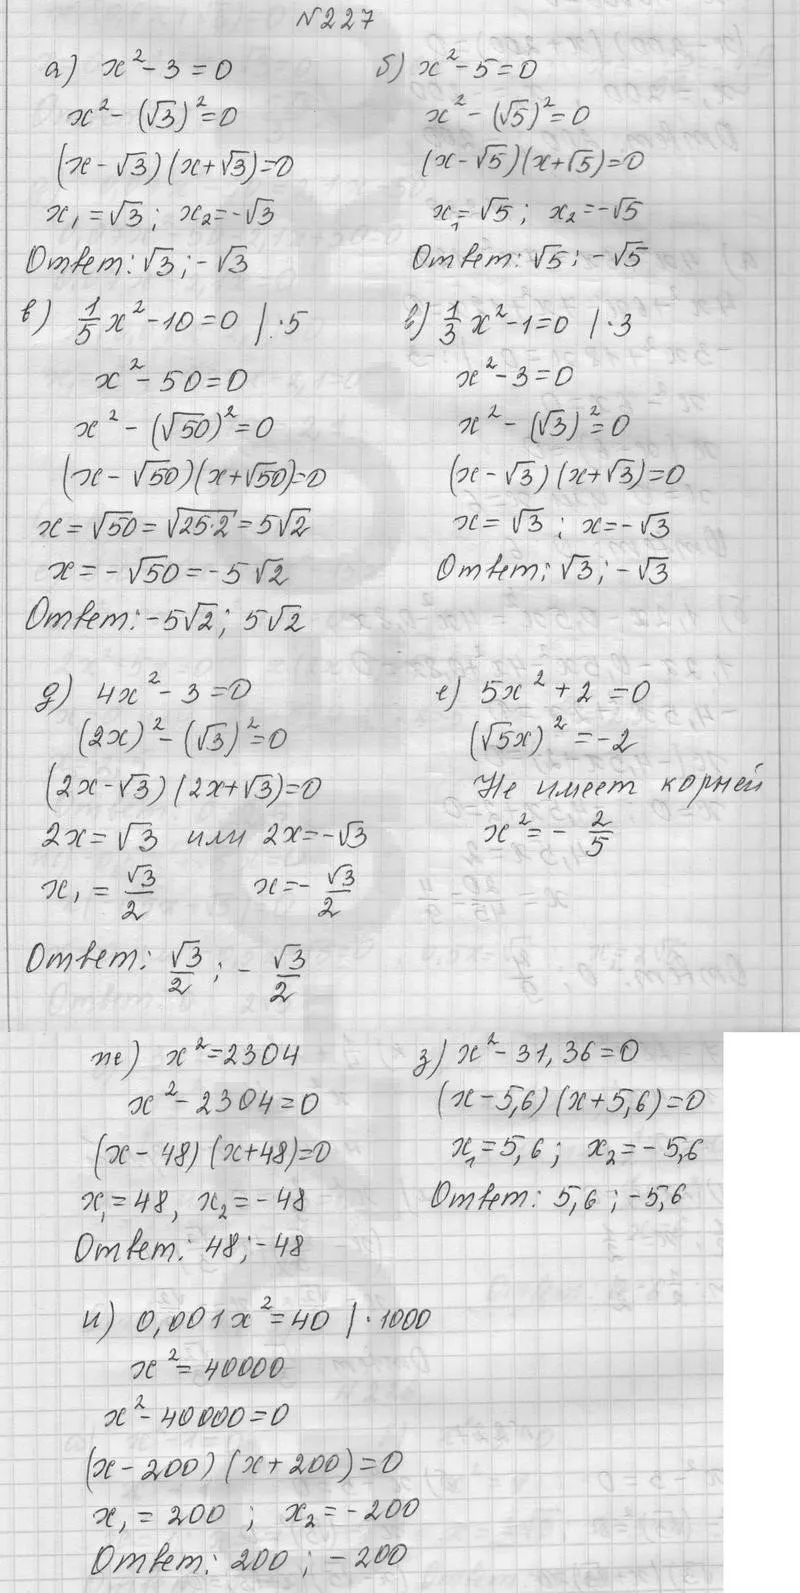 №227
а) x² - 3 = 0
x² - (√3)² = 0
(x - √3)(x + √3) = 0
x₁ = √3; x₂ = -√3
Ответ: √3; -√3
б) x² - 5 = 0
x² - (√5)² = 0
(x - √5)(x + √5) = 0
x₁ = √5; x₂ = -√5
Ответ: √5; -√5
в) 1/5 x² - 10 = 0 | ·5
x² - 50 = 0
x² - (√50)² = 0
(x - √50)(x + √50) = 0
x = √50 = √25·2 = 5√2
x = -√50 = -5√2
Ответ: -5√2; 5√2
в) 1/3 x² - 1 = 0 | ·3
x² - 3 = 0
x² - (√3)² = 0
(x - √3)(x + √3) = 0
x = √3; x = -√3
Ответ: √3; -√3
д) 4x² - 3 = 0
(2x)² - (√3)² = 0
(2x - √3)(2x + √3) = 0
2x = √3 или 2x = -√3
x₁ = √3/2 x = -√3/2
Ответ: √3/2; -√3/2
е) 5x² + 2 = 0
(√5x)² = -2
Не имеет корней
x² = -2/5
ж) x² = 2304
x² - 2304 = 0
(x - 48)(x + 48) = 0
x₁ = 48, x₂ = -48
Ответ: 48; -48
з) x² - 31,36 = 0
(x - 5,6)(x + 5,6) = 0
x₁ = 5,6; x₂ = -5,6
Ответ: 5,6; -5,6
и) 0,001x² = 40 | ·1000
x² = 40000
x² - 40000 = 0
(x - 200)(x + 200) = 0
x₁ = 200; x₂ = -200
Ответ: 200; -200